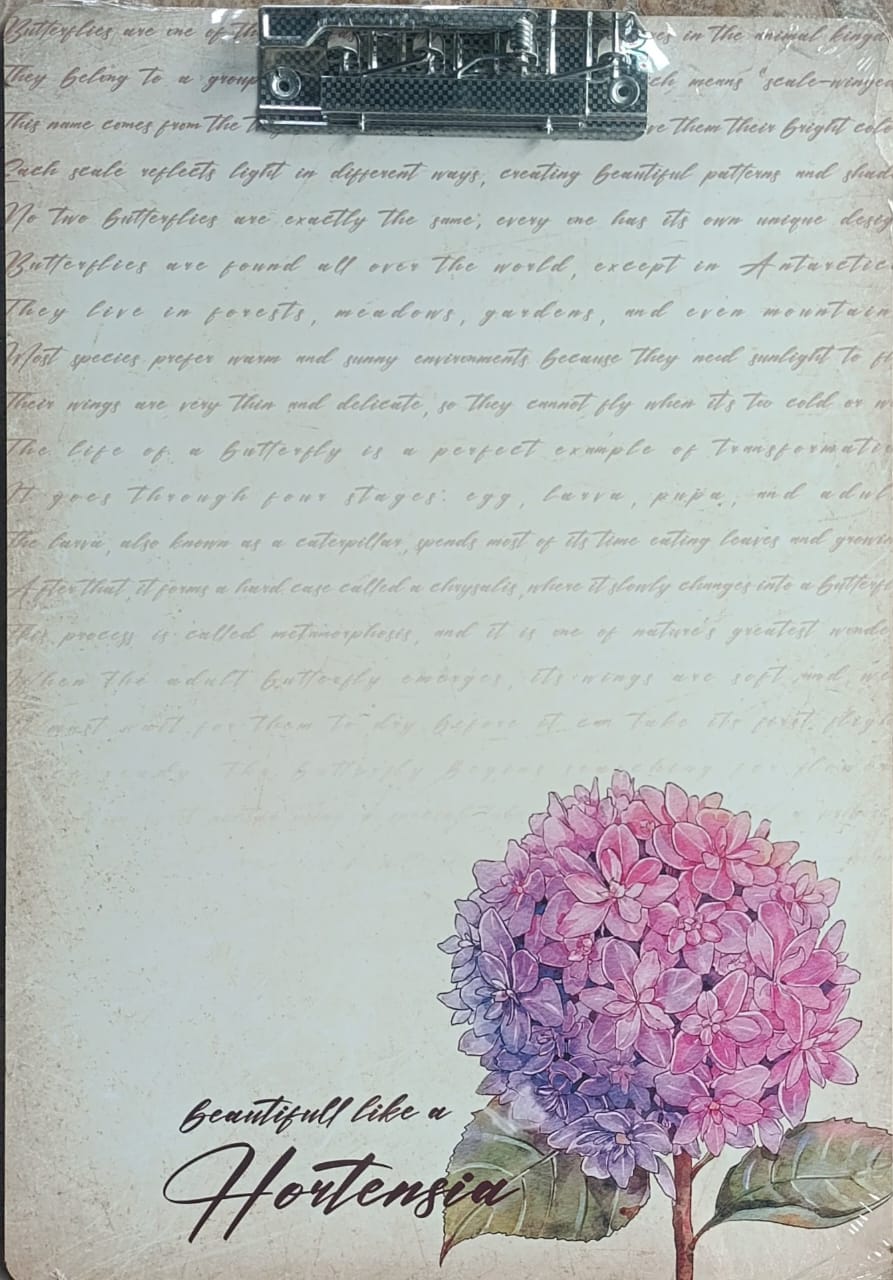 Butterflies are one of th in the animal kingd
They belong to a group ch means "scale-winge
This name comes from the t ve them their bright col
Each scale reflects light in different ways, creating beautiful patterns and shad
No two butterflies are exactly the same, every one has its own unique desig
Butterflies are found all over the world, except in Antarctic
They live in forests, meadows, gardens, and even mountain
Most species prefer warm and sunny environments because they need sunlight to f
Their wings are very thin and delicate, so they cannot fly when it's too cold or w
The life of a butterfly is a perfect example of transformati
It goes through four stages: egg, larva, pupa, and adul
The larva, also known as a caterpillar, spends most of its time eating leaves and growin
After that, it forms a hard case called a chrysalis, where it slowly changes into a butterf
This process is called metamorphosis, and it is one of nature's greatest wonde
When the adult butterfly emerges, its wings are soft and
must wait for them to dry before it can take its first flig
ready the butterfly begins searching for flow
beautifull like a
Hortensia